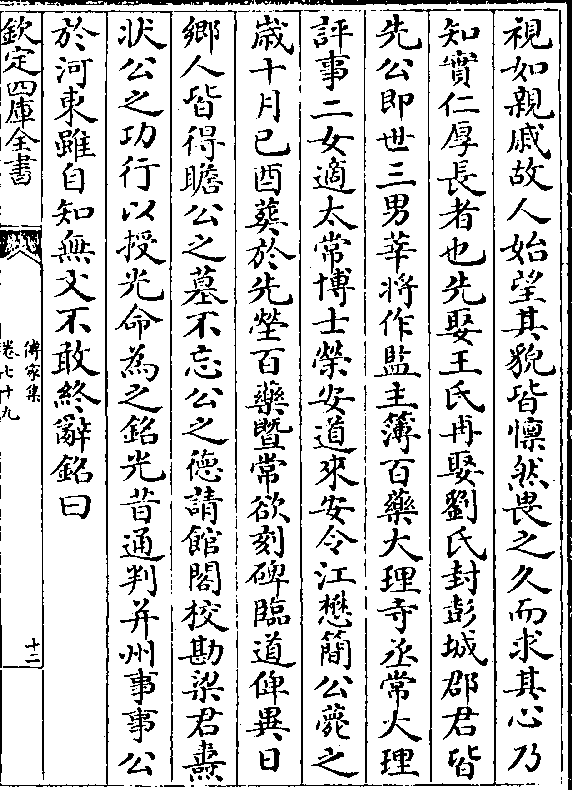 視如親戚故人始望其貌皆懍然畏之久而求其心乃
知實仁厚長者也先娶王氏再娶劉氏封彭城郡君皆
先公即世三男莘將作監主簿百藥大理寺丞常大理
評事二女適太常博士榮安道來安令江懋簡公薨之
歲十月己酉葬於先塋百藥暨常欲刻碑臨道俾異日
鄉人皆得瞻公之墓不忘公之德請館閣校勘梁君燾
狀公之功行以授光命為之銘光昔通判并州事事公
於河東雖自知無文不敢終辭銘曰
欽定四庫全書
傳家集
卷七十九
十二